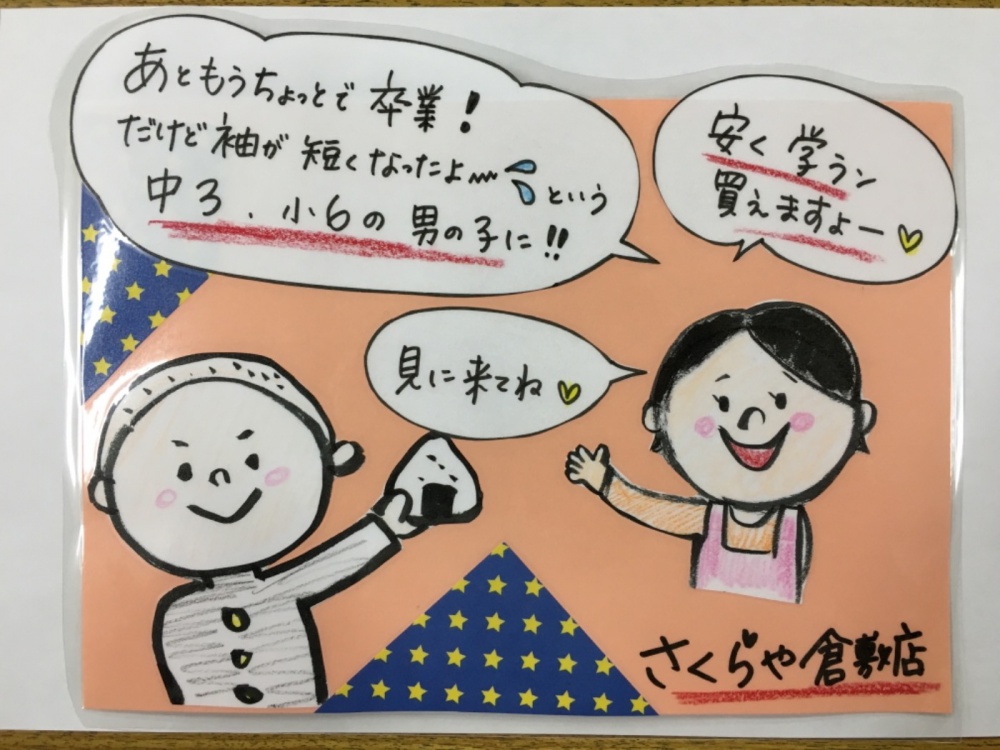 あともうちょっとで 卒業!
だけど 袖が 短くなったよ〰 という
中3、小6の 男の子に!!
安く 学ラン
買えますよー
見に来てね
さくらや倉敷店